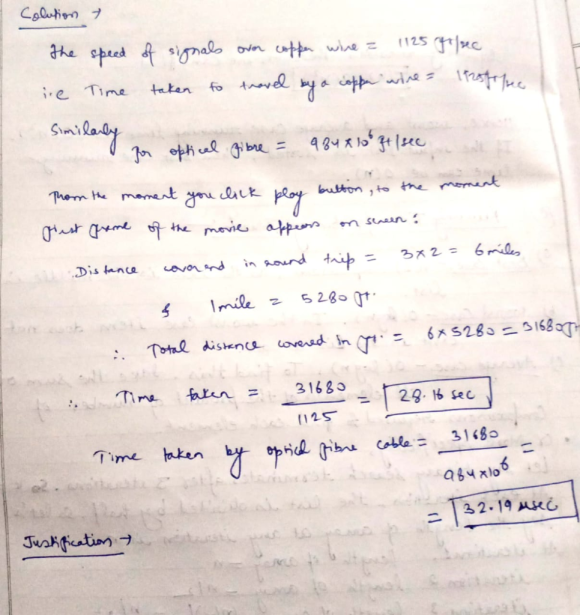 Solution →
The speed of signals over copper wire = 1125 ft/sec
i.e Time taken to travel by a copper wire = 1125ft/sec
Similarly
for optical fibre = 984 x 10⁶ ft/sec
From the moment you click play button, to the moment
first frame of the movie appears on screen :
Distance covered in round trip = 3 x 2 = 6 miles
& 1 mile = 5280 ft.
∴ Total distance covered in ft. = 6 x 5280 = 31680ft
∴ Time taken = 31680 / 1125 = 28.16 sec
Time taken by optical fibre cable = 31680 / 984 x 10⁶ =
= 32.19 µsec
Justification →